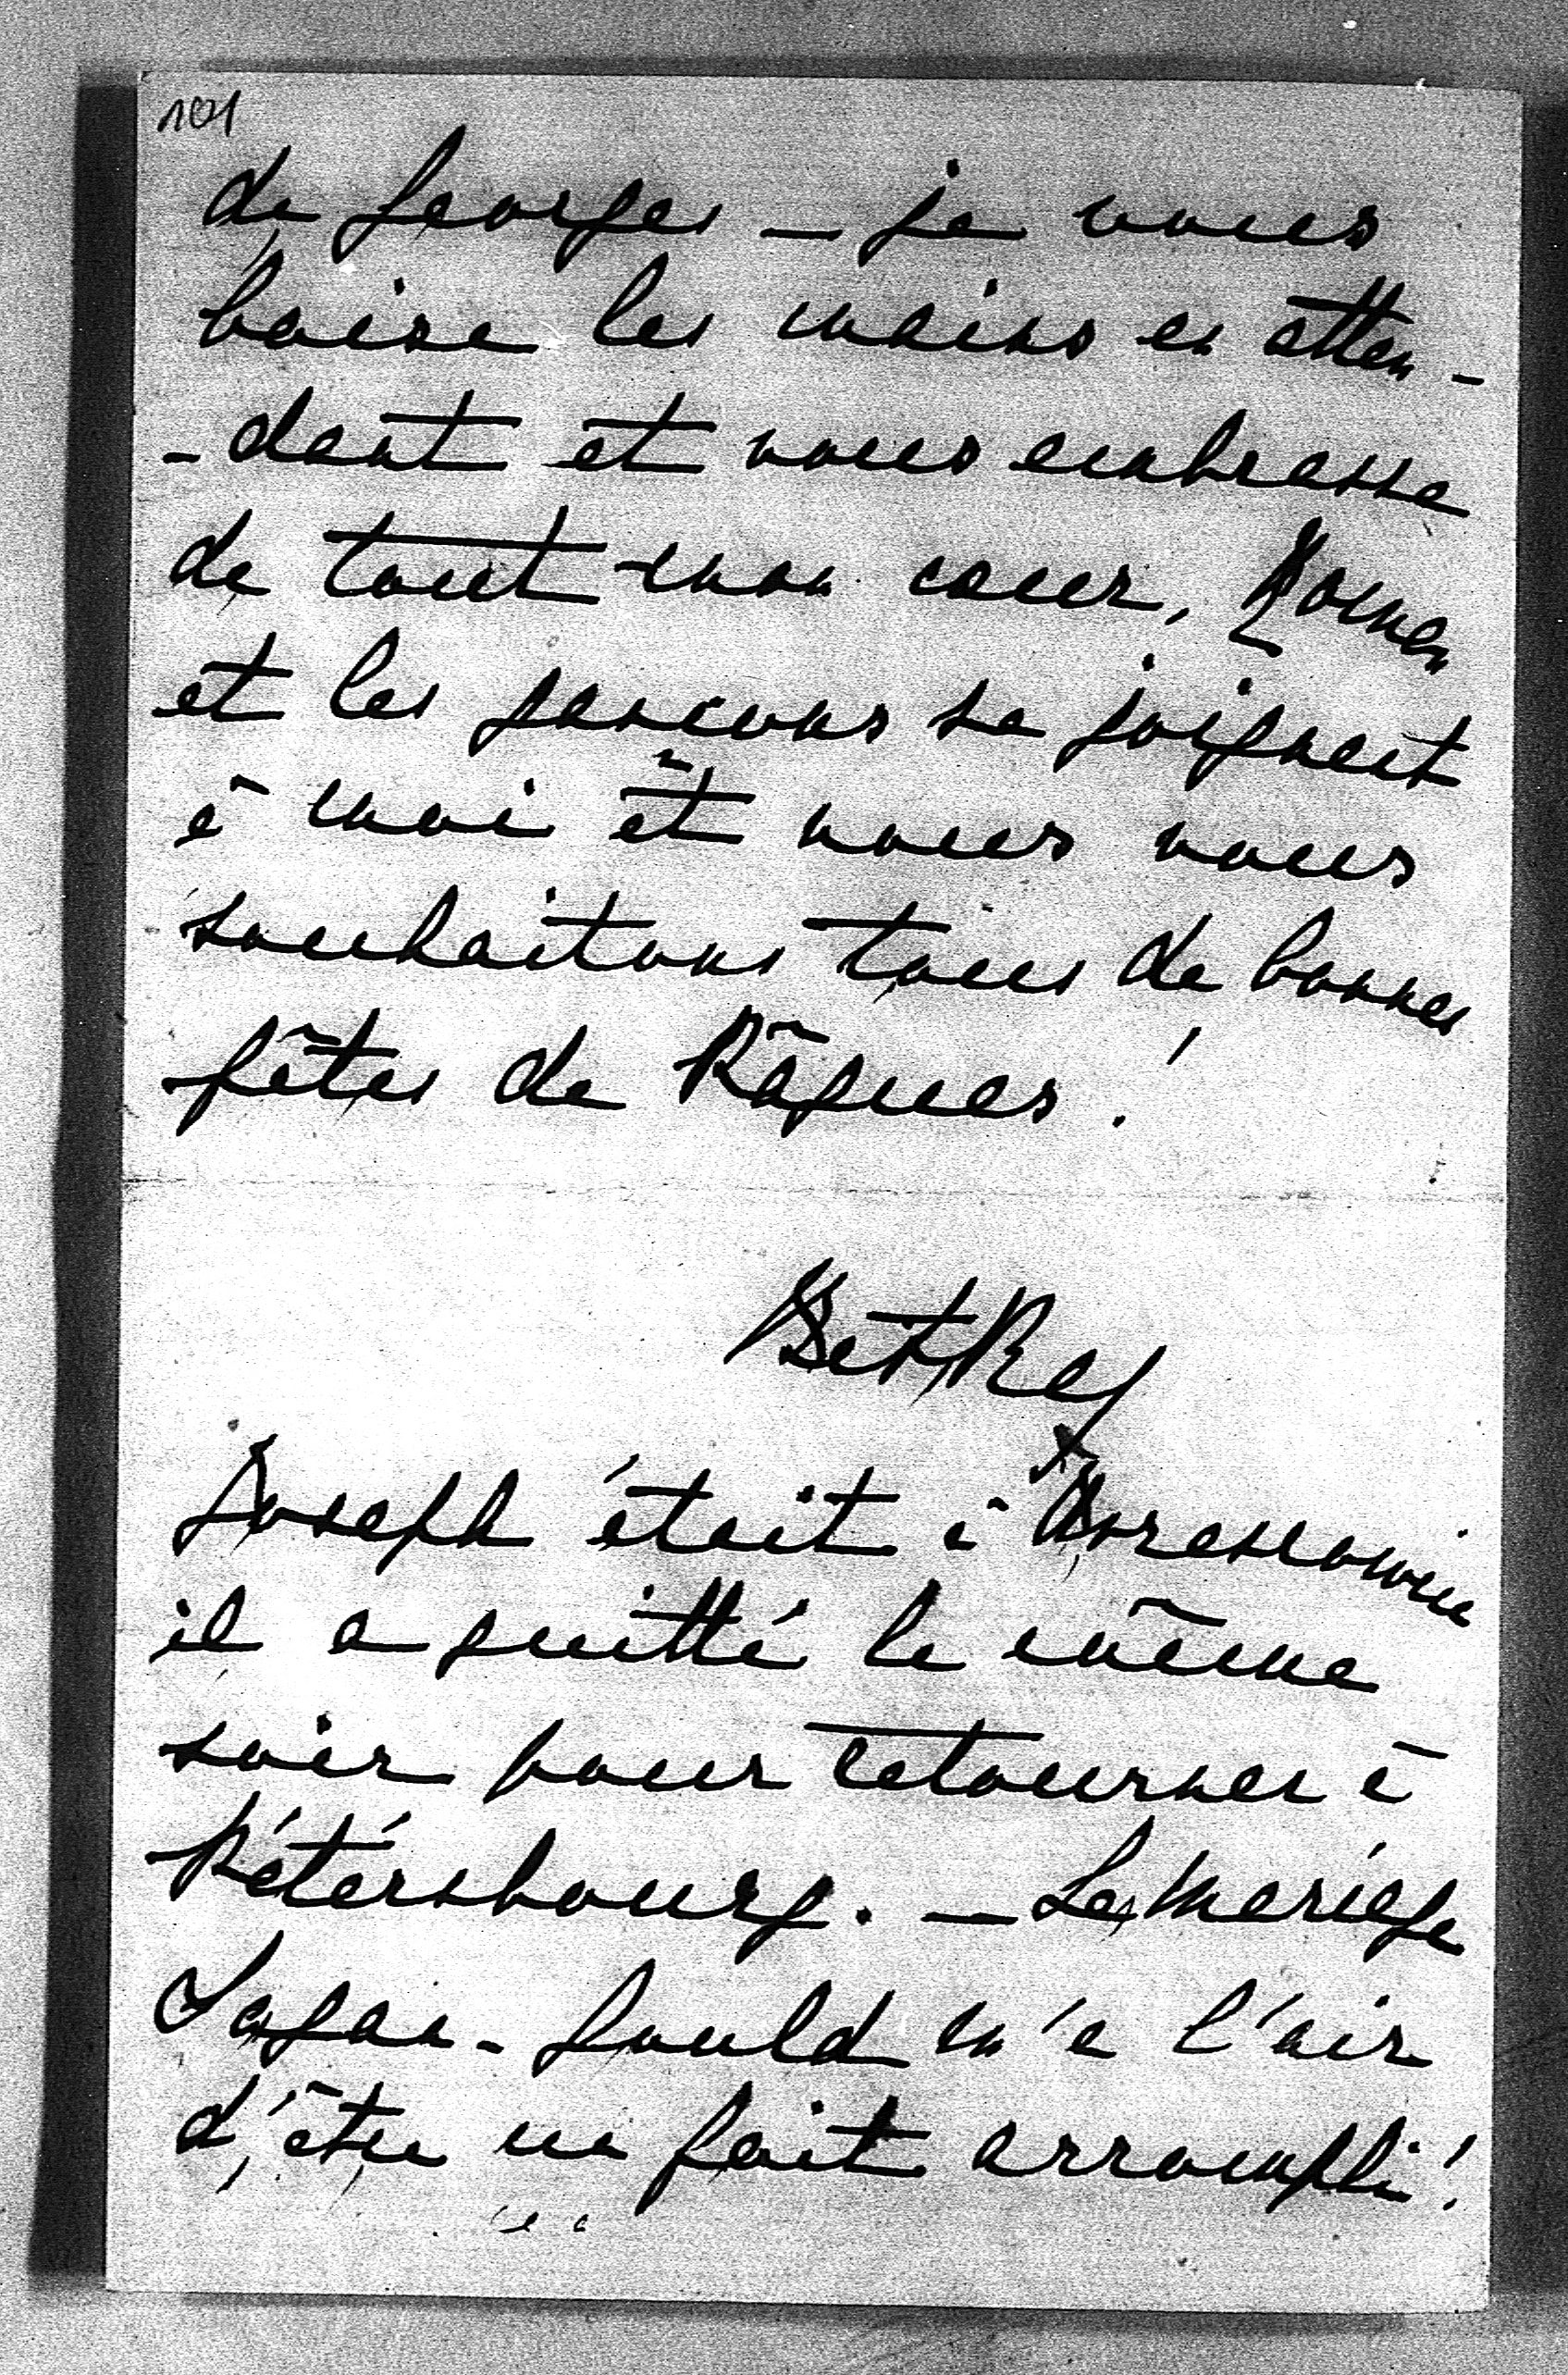 101
de Georges – je vous
baise les mains en atten-
-dant et vous embrasse
de tout mon coeur, Roman
et les garçons se joignent
à moi et nous vous
souhaitons tous de bonnes
fêtes de Pâques!
Betka
Joseph était à
il a quitté le même
soir pour retourner à
Pétérsbourg. – Le Mariage
Sagan-Gould m'a l'air
d'être un fait accompli!